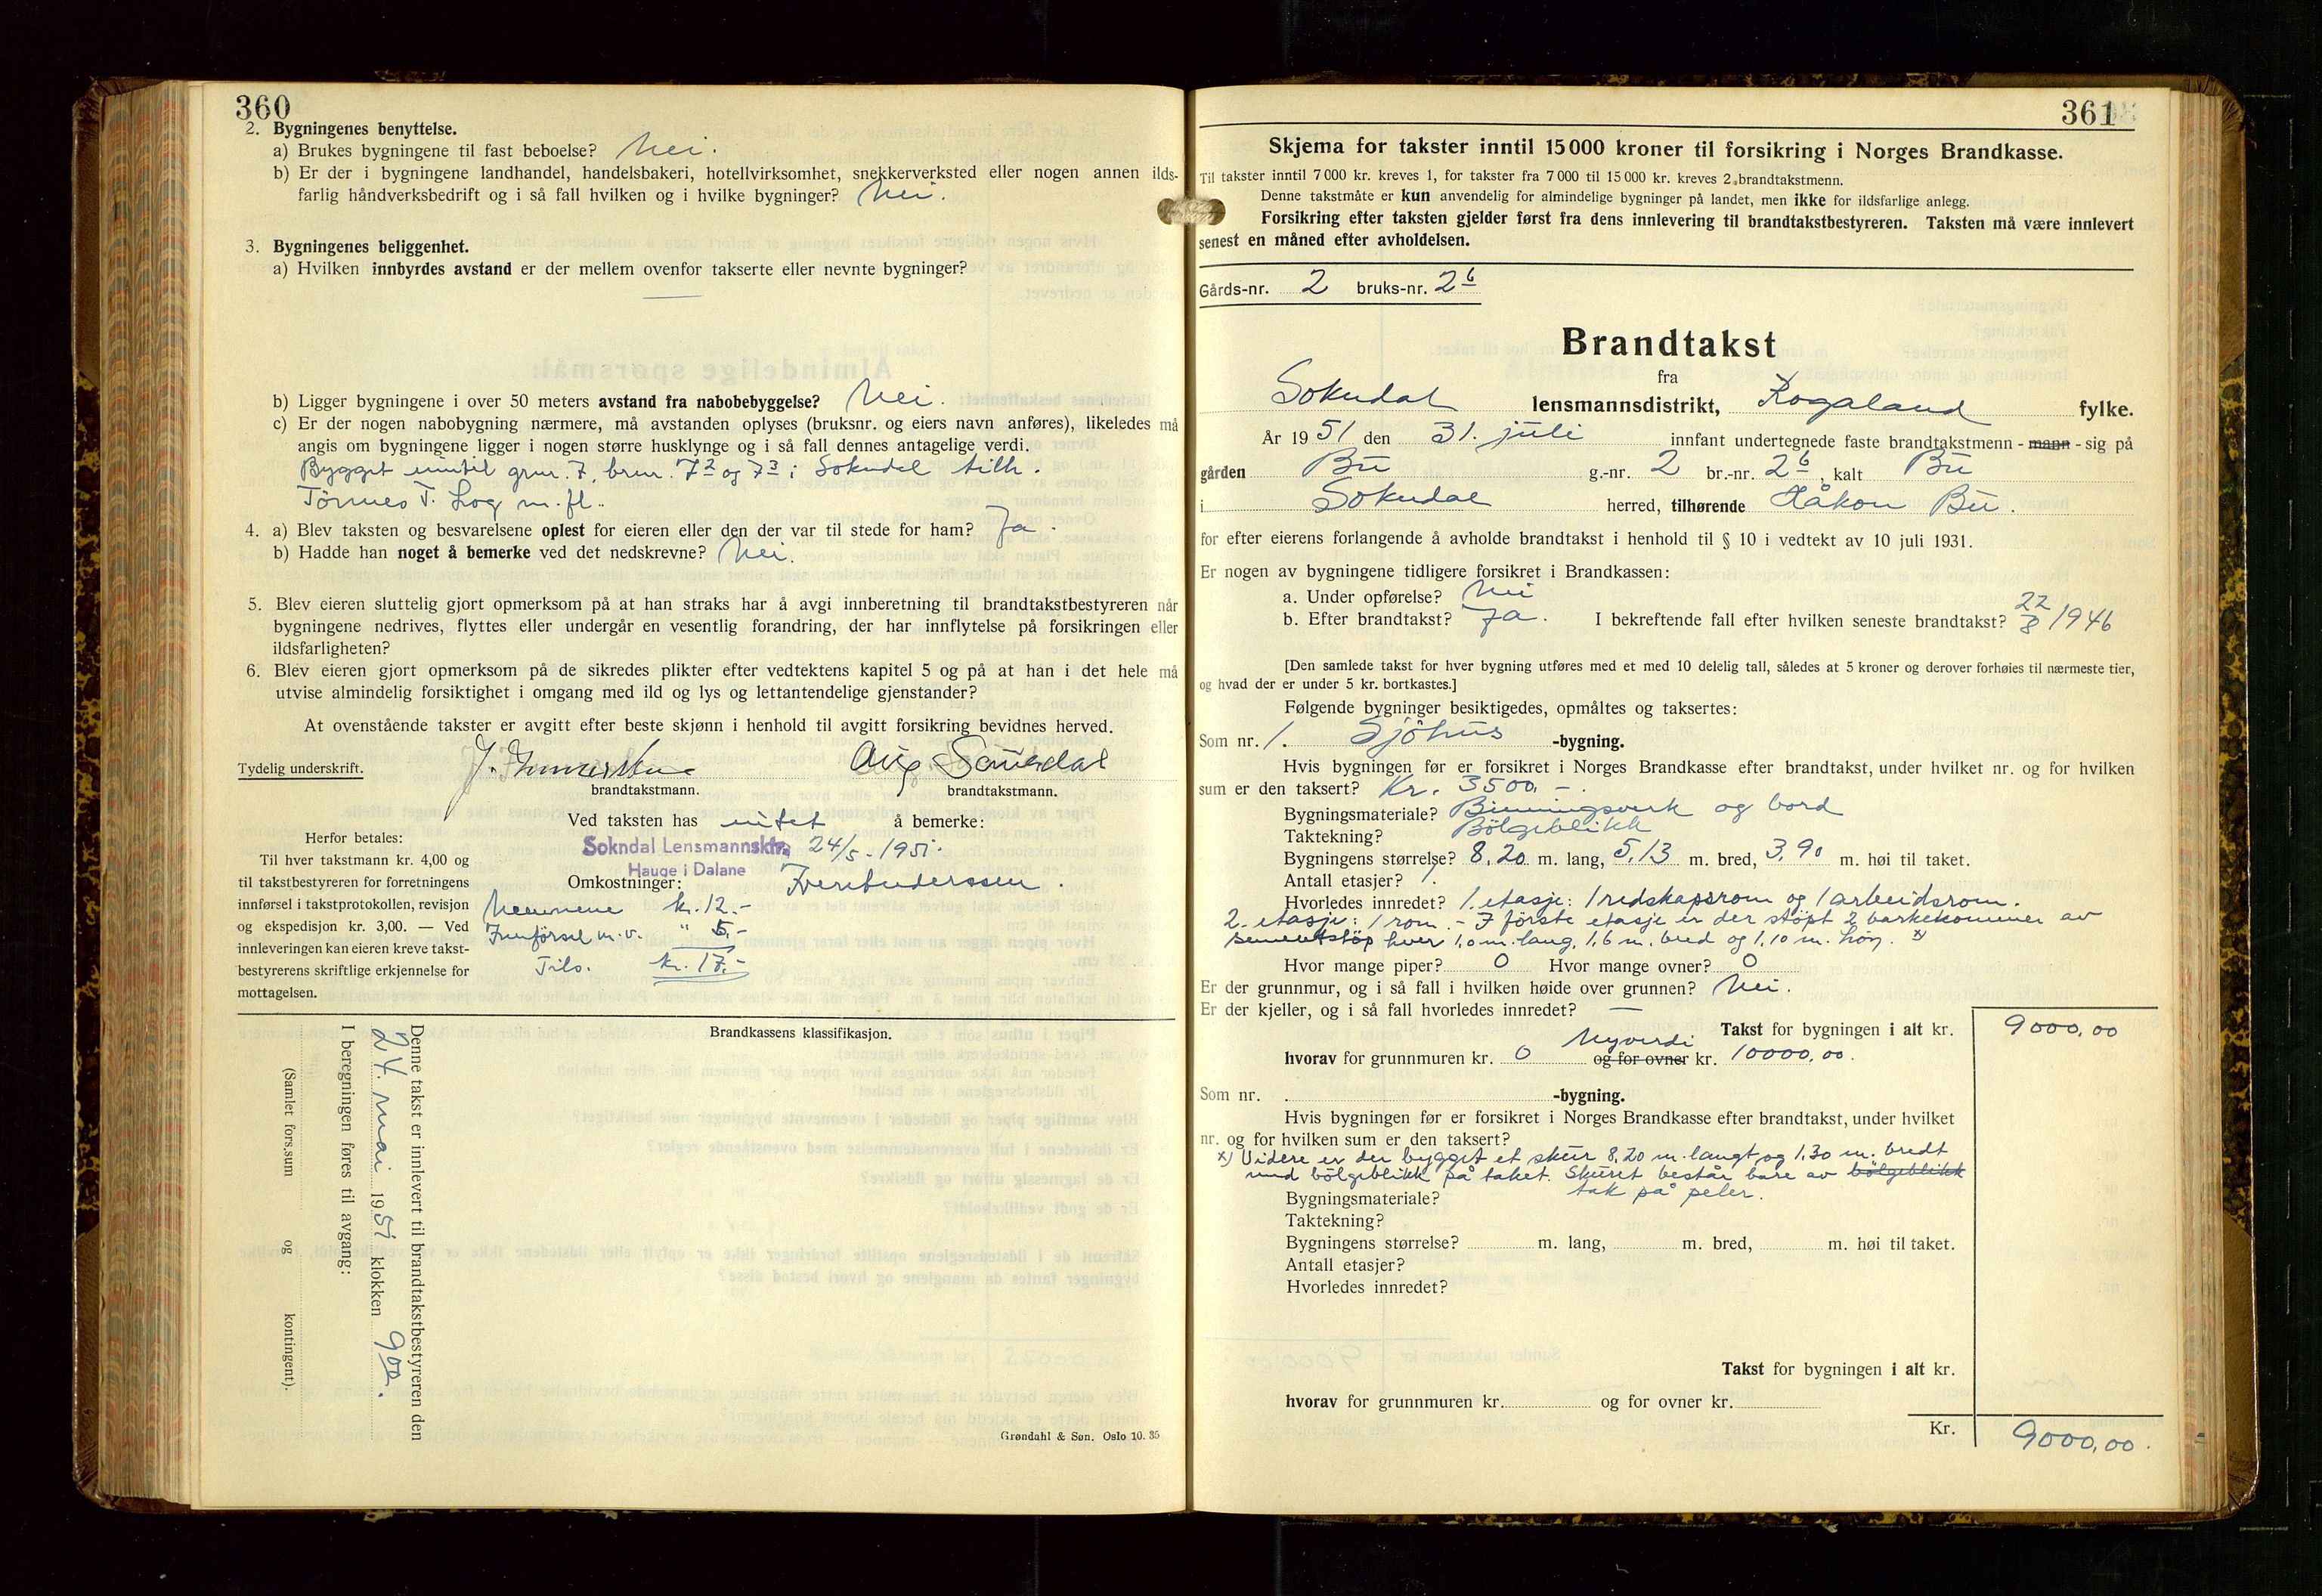 360
2. Bygningenes benyttelse.
a) Brukes bygningene til fast beboelse? Nei.
b) Er der i bygningene landhandel, handelsbakeri, hotellvirksomhet, snekkerverksted eller nogen annen ilds-
farlig håndverksbedrift og i så fall hvilken og i hvilke bygninger? Nei.
3. Bygningenes beliggenhet.
a) Hvilken innbyrdes avstand er der mellem ovenfor takserte eller nevnte bygninger?
b) Ligger bygningene i over 50 meters avstand fra nabobebyggelse? Nei.
c) Er der nogen nabobygning nærmere, må avstanden oplyses (bruksnr. og eiers navn anføres), likeledes må
angis om bygningene ligger i nogen større husklynge og i så fall dennes antagelige verdi.
Bygget inntil grnr. 7, brnr. 7² og 7³ i Sokndal tilh.
Törnes T. Log m.fl.
4. a) Blev taksten og besvarelsene oplest for eieren eller den der var til stede for ham? Ja.
b) Hadde han noget å bemerke ved det nedskrevne? Nei.
5. Blev eieren sluttelig gjort opmerksom på at han straks har å avgi innberetning til brandtakstbestyreren når
bygningene nedrives, flyttes eller undergår en vesentlig forandring, der har innflytelse på forsikringen eller
ildsfarligheten?
6. Blev eieren gjort opmerksom på de sikredes plikter efter vedtektens kapitel 5 og på at han i det hele må
utvise almindelig forsiktighet i omgang med ild og lys og lettantendelige gjenstander?
At ovenstående takster er avgitt efter beste skjønn i henhold til avgitt forsikring bevidnes herved.
Tydelig underskrift. Aug Sandal
brandtakstmann. brandtakstmann.
Ved taksten has intet å bemerke:
Sokndal Lensmannsktr. 24/5-1951.
Hauge i Dalane
Omkostninger:
Mennene kr. 12.-
Innförsel m.v. " 5.-
Tils. kr. 17.-
Herfor betales:
Til hver takstmann kr. 4,00 og
til takstbestyreren for forretningens
innførsel i takstprotokollen, revisjon
og ekspedisjon kr. 3,00. — Ved
innleveringen kan eieren kreve takst-
bestyrerens skriftlige erkjennelse for
mottagelsen.
Brandkassens klassifikasjon.
Denne takst er innlevert til brandtakstbestyreren den
24. mai 1951 klokken 9 00.
I beregningen føres til avgang:
(Samlet fors.sum og kontingent).
Grøndahl & Søn. Oslo 10. 35
361
Skjema for takster inntil 15 000 kroner til forsikring i Norges Brandkasse.
Til takster inntil 7 000 kr. kreves 1, for takster fra 7 000 til 15 000 kr. kreves 2 brandtakstmenn.
Denne takstmåte er kun anvendelig for almindelige bygninger på landet, men ikke for ildsfarlige anlegg.
Forsikring efter taksten gjelder først fra dens innlevering til brandtakstbestyreren. Taksten må være innlevert
senest en måned efter avholdelsen.
Gårds-nr. 2 bruks-nr. 2 6
Brandtakst
fra
Sokndal lensmannsdistrikt, Rogaland fylke.
År 1951 den 31. juli innfant undertegnede faste brandtakstmenn - mann - sig på
gården Bu g.-nr. 2 br.-nr. 2 6, kalt Bu
i Sokndal herred, tilhørende Håkon Bu.
for efter eierens forlangende å avholde brandtakst i henhold til § 10 i vedtekt av 10 juli 1931.
Er nogen av bygningene tidligere forsikret i Brandkassen:
a. Under opførelse? Nei
b. Efter brandtakst? Ja. I bekreftende fall efter hvilken seneste brandtakst? 22/8 1946
[Den samlede takst for hver bygning utføres med et med 10 delelig tall, således at 5 kroner og derover forhøies til nærmeste tier,
og hvad der er under 5 kr. bortkastes.]
Følgende bygninger besiktigedes, opmåltes og taksertes:
Som nr. 1. Sjöhus -bygning.
Hvis bygningen før er forsikret i Norges Brandkasse efter brandtakst, under hvilket nr. og for hvilken
sum er den taksert? Kr. 3500,-.
Bygningsmateriale? Binningsverk og bord
Taktekning? Bölgeblikk
Bygningens størrelse? 8,20 m. lang, 5,13 m. bred, 3,90 m. høi til taket.
Antall etasjer? 1.
Hvorledes innredet? 1. etasje: 1 redskapsrom og 1 arbeidsrom.
2. etasje: 1 rom. - I förste etasje er der støpt 2 barkekommer av
sementstöp hver 1,0 m. lang, 1,6 m. bred og 1,10 m. høy. x)
Hvor mange piper? 0 Hvor mange ovner? 0
Er der grunnmur, og i så fall i hvilken høide over grunnen? Nei.
Er der kjeller, og i så fall hvorledes innredet? —
Takst for bygningen i alt kr. 9000,00
Nyverdi
hvorav for grunnmuren kr. 0 og for ovner kr. 10000,00.
Som nr. . -bygning.
Hvis bygningen før er forsikret i Norges Brandkasse efter brandtakst, under hvilket
nr. og for hvilken sum er den taksert?
x) Videre er der bygget et skur 8,20 m. langt og 1,30 m. bredt
med bölgeblikk på taket. Skuret består bare av bölgeblikk
tak på peler.
Bygningsmateriale?
Taktekning?
Bygningens størrelse? m. lang, m. bred, m. høi til taket.
Antall etasjer?
Hvorledes innredet?
Takst for bygningen i alt kr.
hvorav for grunnmuren kr. og for ovner kr.
Kr. 9000,00.